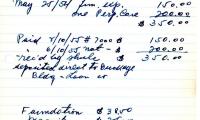 May 25/54 fun. exp. 150.00
one Perp. Care 200.00
$350.00
Paid 7/10/55 # 7000 $ 150.00
6/10/55 nat - 200.00
rec'd by Shule $350.00
deposited direct to
Bldg - Loan
Foundation $ 35.00